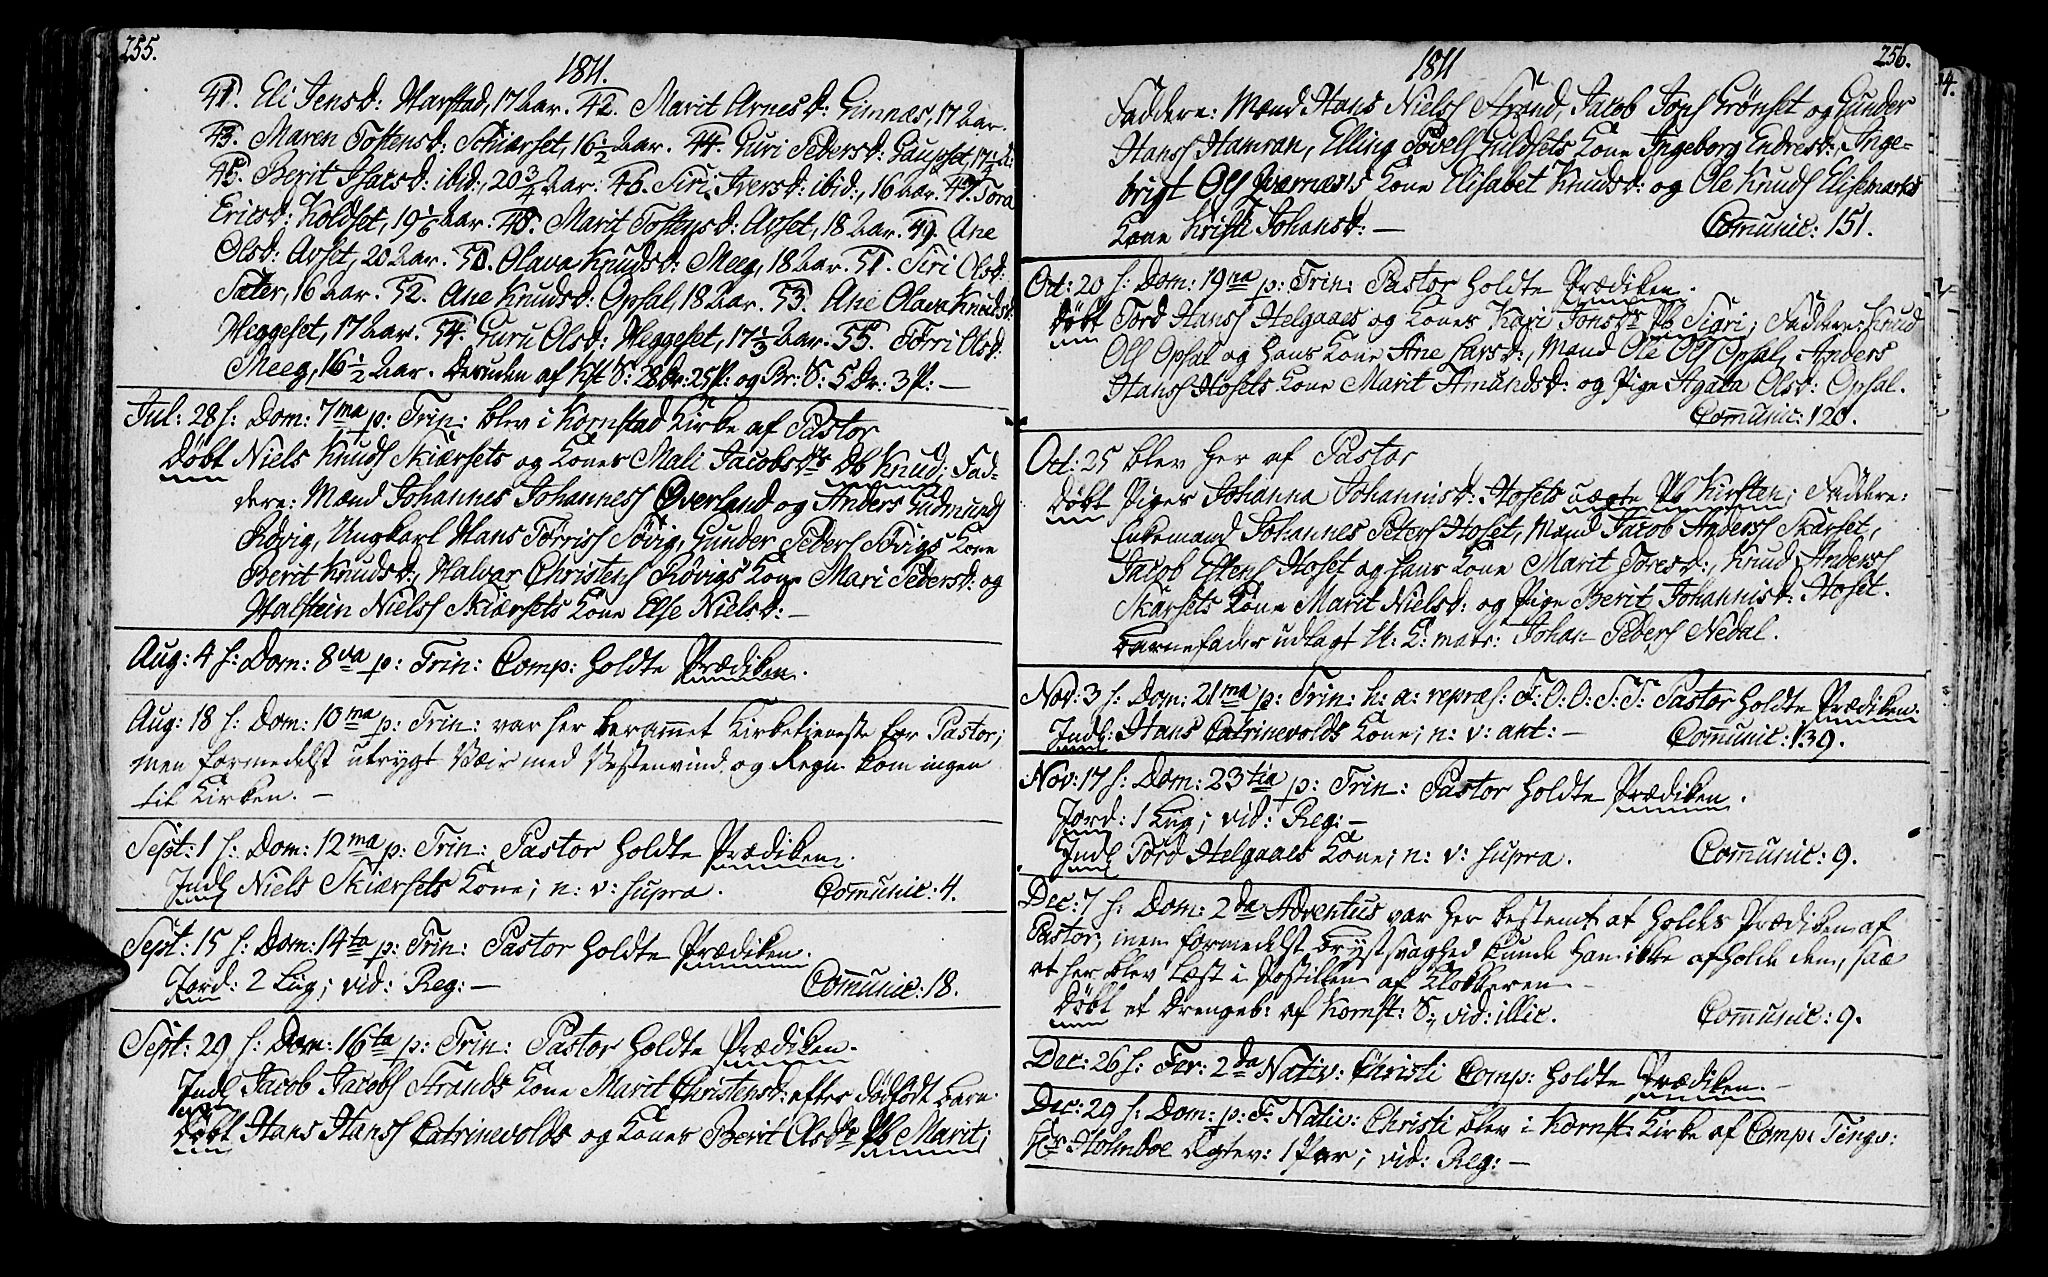 255.
1811.
41. Eli Jensd: Harstad, 17 Aar. 42. Marit Arnesd: Gimnæs, 17 Aar.
43. Maren Tostensd: Schiærset, 16½ Aar. 44. Guri Pedersd: Gaupset, 17½ A:
45. Berit Isacsd: ibid:, 20¾ Aar. 46. Siri Iversd: ibid:, 16 Aar. 47. Tora
Ericsd: Koldset, 19⅙ Aar. 48. Marit Tostensd: Avset, 18 Aar. 49. Ane
Olsd: Avset, 20 Aar. 50. Olava Knudsd: Meeg, 18 Aar. 51. Siri Olsd:
Sater, 16 Aar. 52. Ane Knudsd: Opsal, 18 Aar. 53. Ane Olava Knudsd:
Heggeset, 17 Aar. 54. Guru Olsd: Heggeset, 17⅓ Aar. 55. Tørri Olsd:
Meeg, 16½ Aar. Desuden af Kst S: 28 Dr: 25 P: og Br: S: 5 Dr: 3 P: —
Jul: 28 s: Dom: 7ma p: Trin: blev i Kornstad Kirke af Pastor
Døbt Niels Knuds Skiærsets og Kones Mali Jacobsdr Db Knud; Fad-
dere: Mænd Johannes Johanness Øverland og Anders Gudmunds
Røvig, Ungkarl Hans Tørriss Søvig, Gunder Peders Søvigs Kone
Berit Knudsd:, Halvar Christens Røvigs Kone Mari Pedersd: og
Halstein Nielss Skiærsets Kone Else Nielsd: —
Aug: 4 s: Dom: 8va p: Trin: Comp: holdte Prædiken.
Aug: 18 s: Dom: 10ma p: Trin: var her berammet Kirketieneste for Pastor;
men formedelst utrygt Væir med Vestenvind og Regn kom ingen
til Kirken. —
Sept: 1 s: Dom: 12ma p: Trin: Pastor holdte Prædiken.
Indl Niels Skiærsets Kone; n: v: supra. Comunic: 4.
Sept: 15 s: Dom: 14ta p: Trin: Pastor holdte Prædiken.
Jord: 2 Liig; vid: Reg: — Comunic: 18.
Sept: 29 s: Dom: 16ta p: Trin: Pastor holdte Prædiken.
Indl Jacob Jacobs Strands Kone Marit Christensd: efter dødfødt Barn.
Døbt Hans Hanss Catrinevolds og Kones Berit Olsdr Pb Marit;
256.
1811
Faddere: Mænd Hans Nielss Strand, Jacob Jons Grønset og Gunder
Hanss Hamran, Elling Povels Guldsets Kone Ingeborg Endresd:, Inge-
brigt Ols Kone Elisabet Knudsd: og Ole Knuds Elisemarks
Kone Kristi Johansd: — Comunic: 151.
Oct: 20 s: Dom: 19na p: Trin: Pastor holdte Prædiken.
Døbt Tord Hanss Helgaaes og Kones Kari Jonsdr Pb Sigri; Faddere: Knud
Ols Opsal og hans Kone Ane Larsd:, Mand Ole Ols Opsal, Anders
Hanss Hosets Kone Marit Amundsd: og Pige Agata Olsd: Opsal.
Comunic: 120.
Oct: 25 blev her af Pastor
Døbt Piges Johanna Johannisd: Hosets uægte Pb Kirsten; Faddere:
Enkemand Johannes Peters Hoset, Mænd Jacob Anderss Skarset,
Jacob Estens Hoset og hans Kone Marit Toresd:, Knud Anderss
Skarsets Kone Marit Nielsd: og Pige Berit Johannisd: Hoset.
Barnefader udlagt U: K: mats: Johan Peders Nedal.
Nov: 3 s: Dom: 21ma p: Trin: h: a: repræs: F: O: O: S: S: Pastor holdte Prædiken.
Indl: Hans Catrinevolds Kone; n: v: ant: — Comunic: 139.
Nov: 17 s: Dom: 23tia p: Trin: Pastor holdte Prædiken.
Jord: 1 Liig; vid: Reg: —
Indl Tord Helgaaes Kone; n: v: supra. Comunic: 9.
Dec: 7 s: Dom: 2da Adventus var her bestemt at holdes Prædiken af
Pastor; men formedelst Brystsvaghed kunde han ikke afholde dem, saa
at her blev læst i Postillen af Klokkeren.
Døbt et Drengeb: af Kornst: S:, vid: illic. Comunic: 9.
Dec: 26 s: Fer: 2da Nativ: Christi Comp: holdte Prædiken. —
Dec: 29 s: Dom: p: F: Nativ: Christi blev i Kornst: Kirke af Comp: Tingv:
Hr Holmboe Egtev: 1 Par; vid: Reg: —